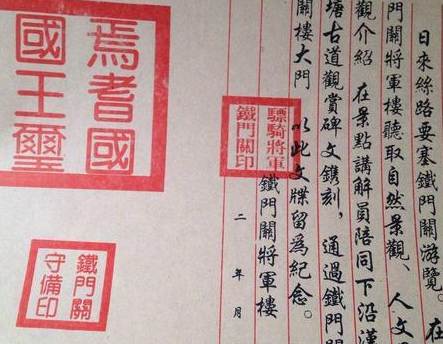 日來絲路要塞鐵門關游覽。在
門關將軍樓聽取自然景觀、人文
觀介紹 在景點講解員陪同下沿漢
塘古道觀賞碑文鐫刻，通過鐵門關
關樓大門 以此文牒留爲紀念。
鐵門關將軍樓
二 年 月
驃騎將軍
鐵門關印
焉耆國
國王璽
鐵門關
守備印